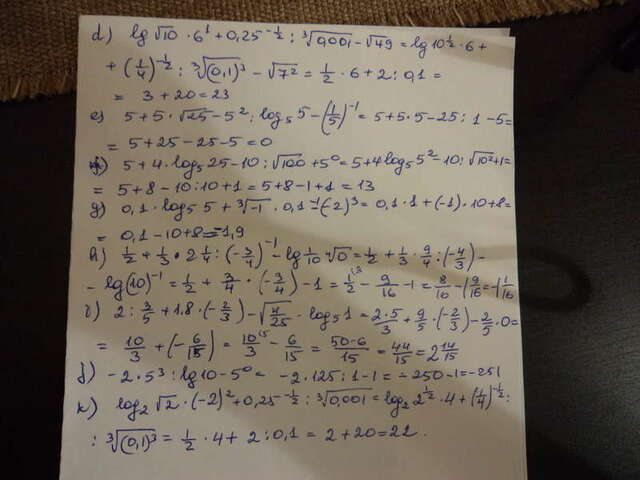 d) lg√10 · 6¹ + 0,25^{-1/2} : ∛0,001 - √49 = lg10^{1/2} · 6 +
+ (1/4)^{-1/2} : ∛(0,1)³ - √7² = 1/2 · 6 + 2 : 0,1 =
= 3 + 20 = 23
e) 5 + 5 · √25 - 5² : log₅5 - (1/5)^{-1} = 5 + 5 · 5 - 25 : 1 - 5 =
= 5 + 25 - 25 - 5 = 0
f) 5 + 4 · log₅25 - 10 : √100 + 5⁰ = 5 + 4log₅5² - 10 : √10² + 1 =
= 5 + 8 - 10 : 10 + 1 = 5 + 8 - 1 + 1 = 13
g) 0,1 · log₅5 + ∛-1 · 0,1^{-1} - (-2)³ = 0,1 · 1 + (-1) · 10 + 8 =
= 0,1 - 10 + 8 = -1,9
h) 1/2 + 1/3 · 2 1/4 : (-3/4)^{-1} - lg 1/10 √0 = 1/2 + 1/3 · 9/4 : (-4/3) -
- lg(10)^{-1} = 1/2 + 3/4 · (-3/4) - 1 = 1/2 - 9/16 - 1 = 8/16 - 1 9/16 = -1 1/16
i) 2 : 3/5 + 1.8 · (-2/3) - √4/25 · log₅1 = 2·5/3 + 9/5 · (-2/3) - 2/5 · 0 =
= 10/3 + (-6/15) = 10/3 - 6/15 = 50-6/15 = 44/15 = 2 14/15
j) -2 · 5³ : lg10 - 5⁰ = -2 · 125 : 1 - 1 = -250 - 1 = -251
k) log₂√2 · (-2)² + 0,25^{-1/2} : ∛0,001 = log₂2^{1/2} · 4 + (1/4)^{-1/2} :
: ∛(0,1)³ = 1/2 · 4 + 2 : 0,1 = 2 + 20 = 22.